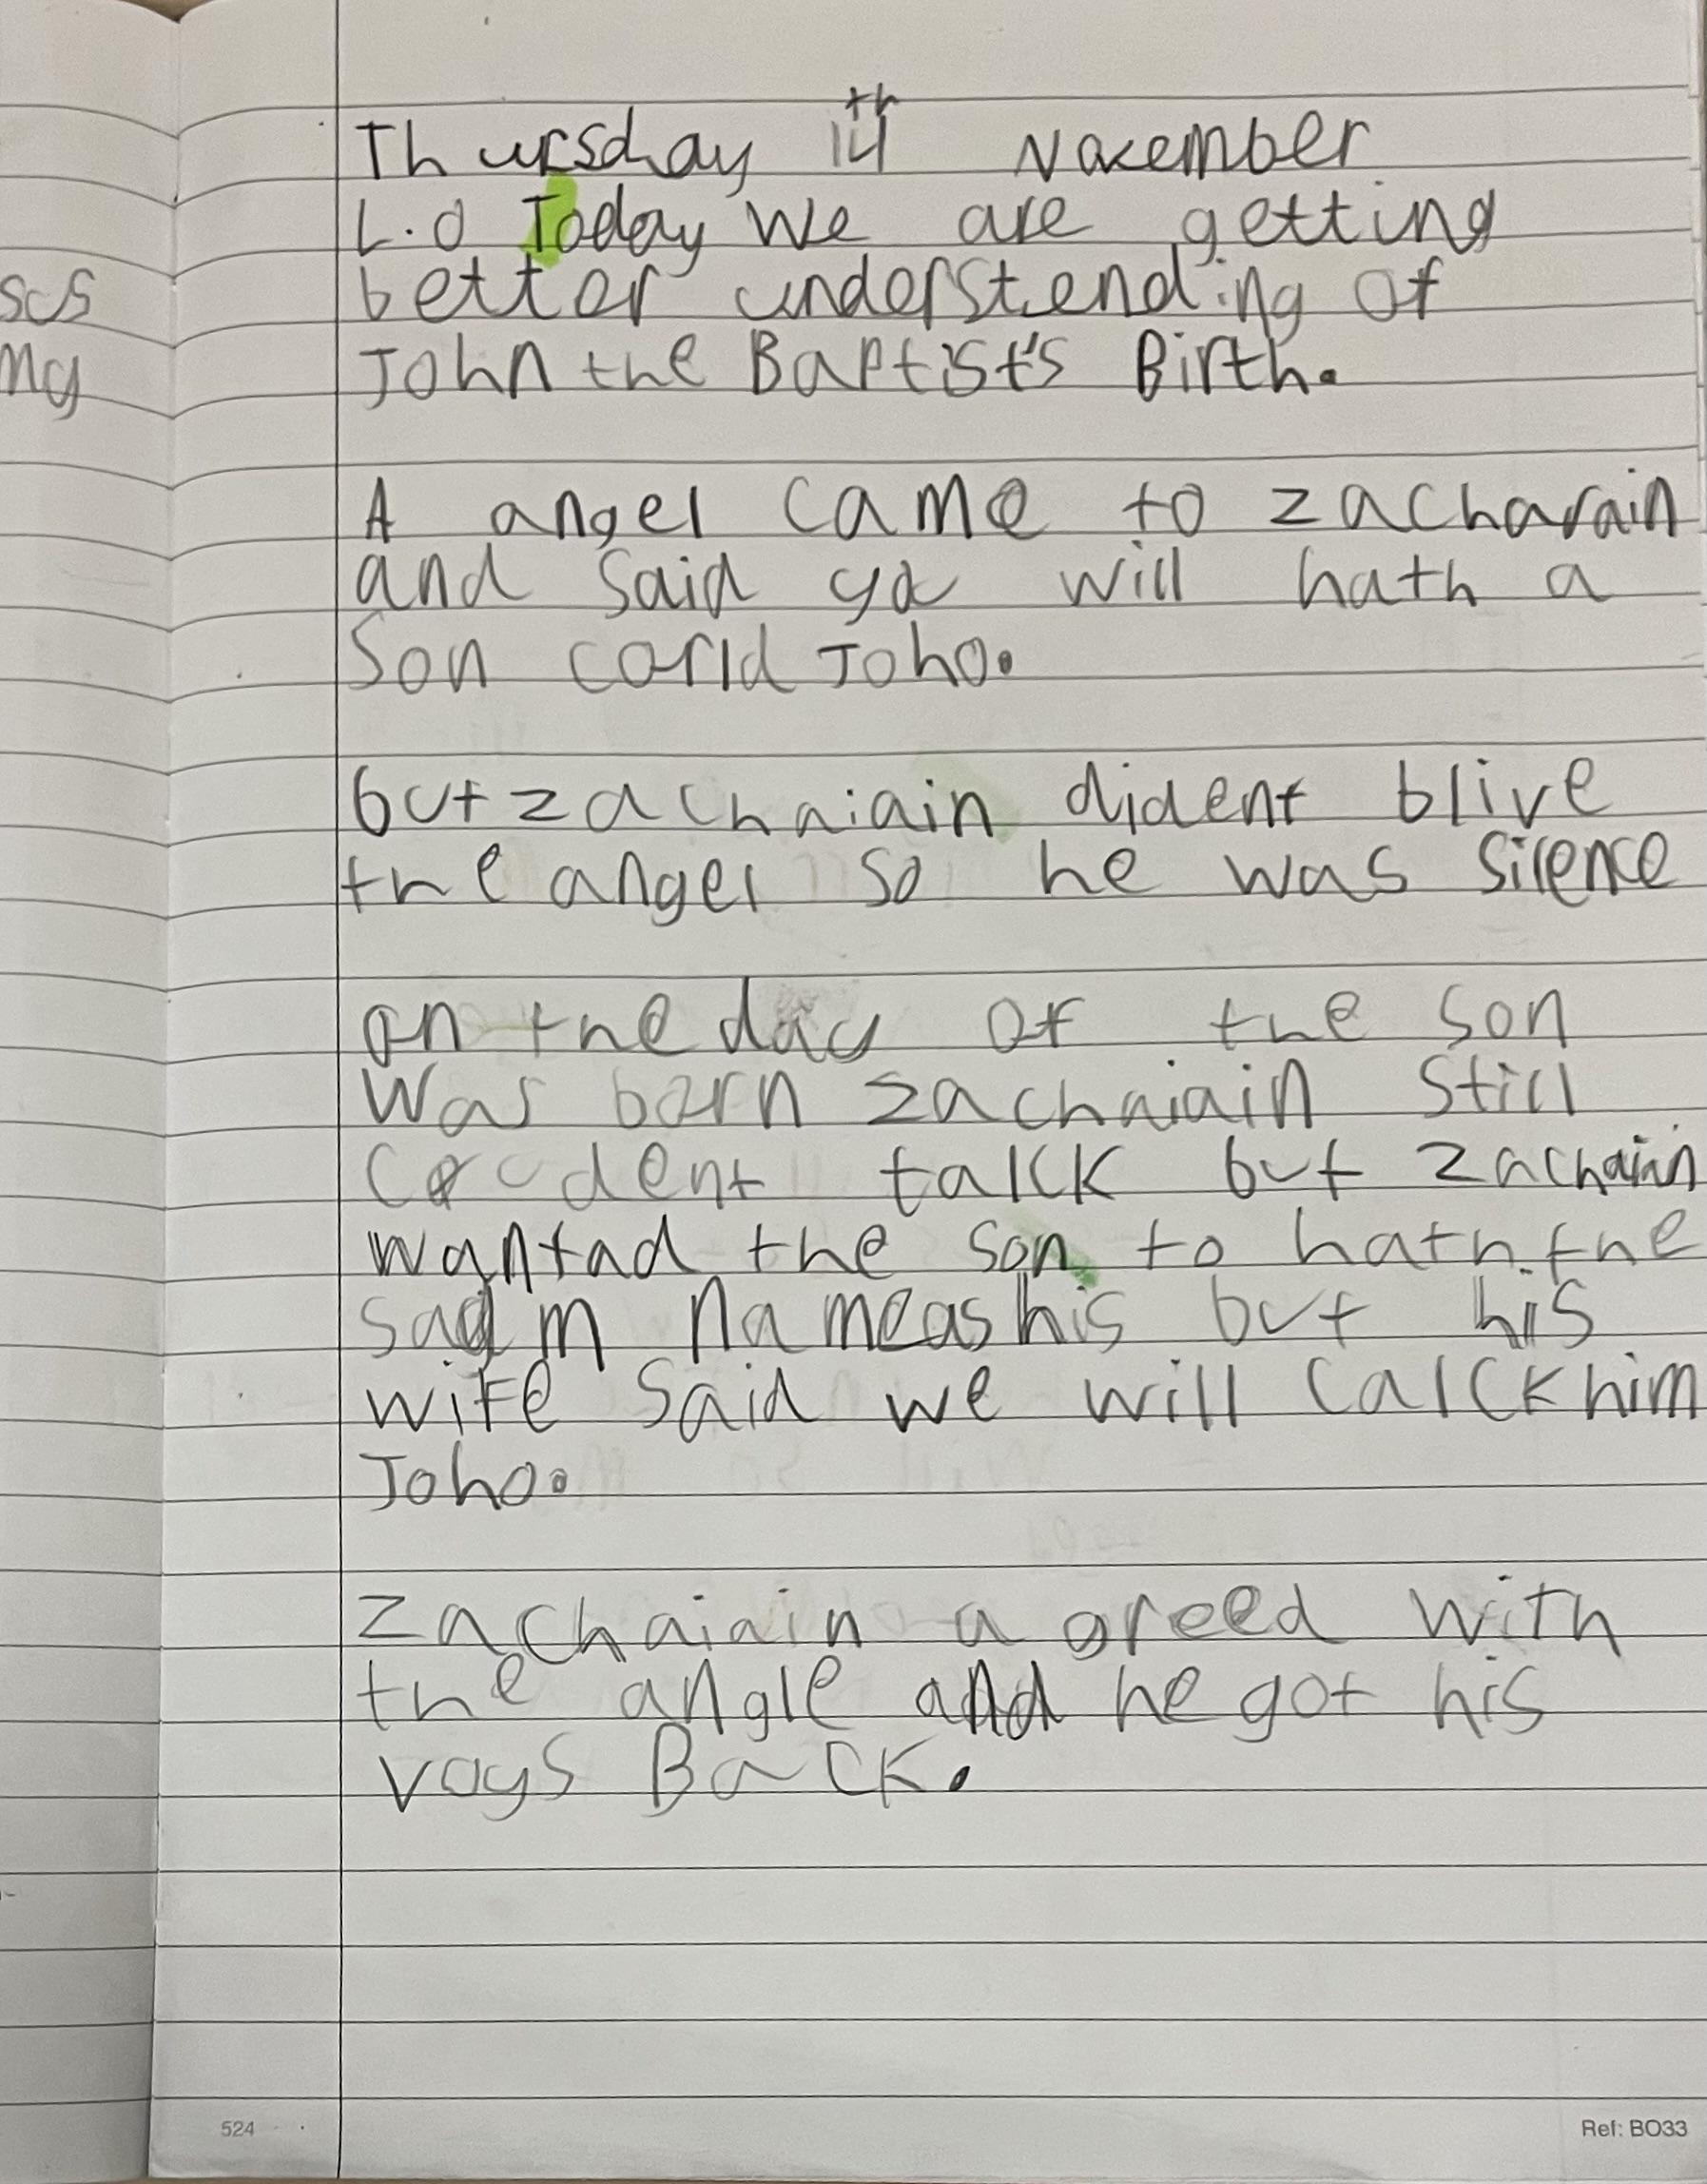 Thursday 14th November
L.O Today we are getting
better understending of
John the Baptist's Birth.
A angel came to zacharain
and said yo will hath a
Son corld Joho.
but zachaiain dident blive
the angel so he was silence
on the day of the son
was born zachaiain still
coudent talck but zachaian
wantad the son to hath the
sam name as his but his
wife said we will calck him
Joho.
zachaiain agreed with
the angle and he got his
voys Back.
scs
my
524
Ref: BO33